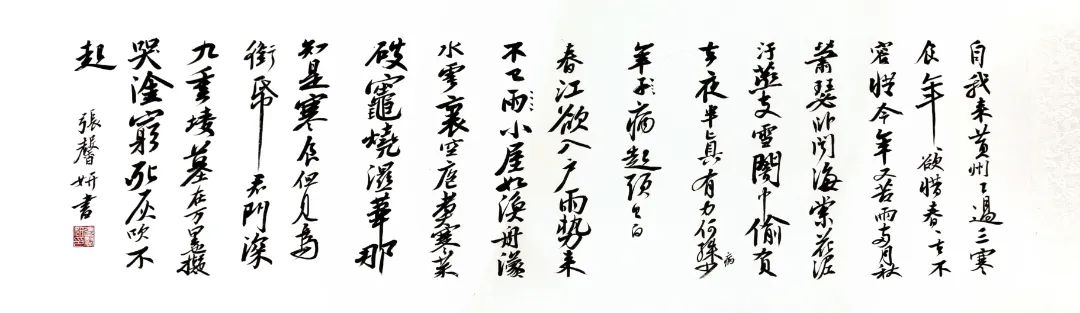 自我来黄州已過三寒
食年〻欲惜春〻去不
容惜今年又苦雨兩月秋
蕭瑟卧聞海棠花泥
汙燕支雪闇中偷負
去夜半真有力何殊少
病
年子病起頭已白
春江欲入户雨勢来
不已雨小屋如漁舟濛〻
水雲裏空庖煮寒菜
破竈燒濕葦那
知是寒食但見烏
銜帋君門深
九重墳墓在万里擬
哭塗窮死灰吹不
起
張馨妍書